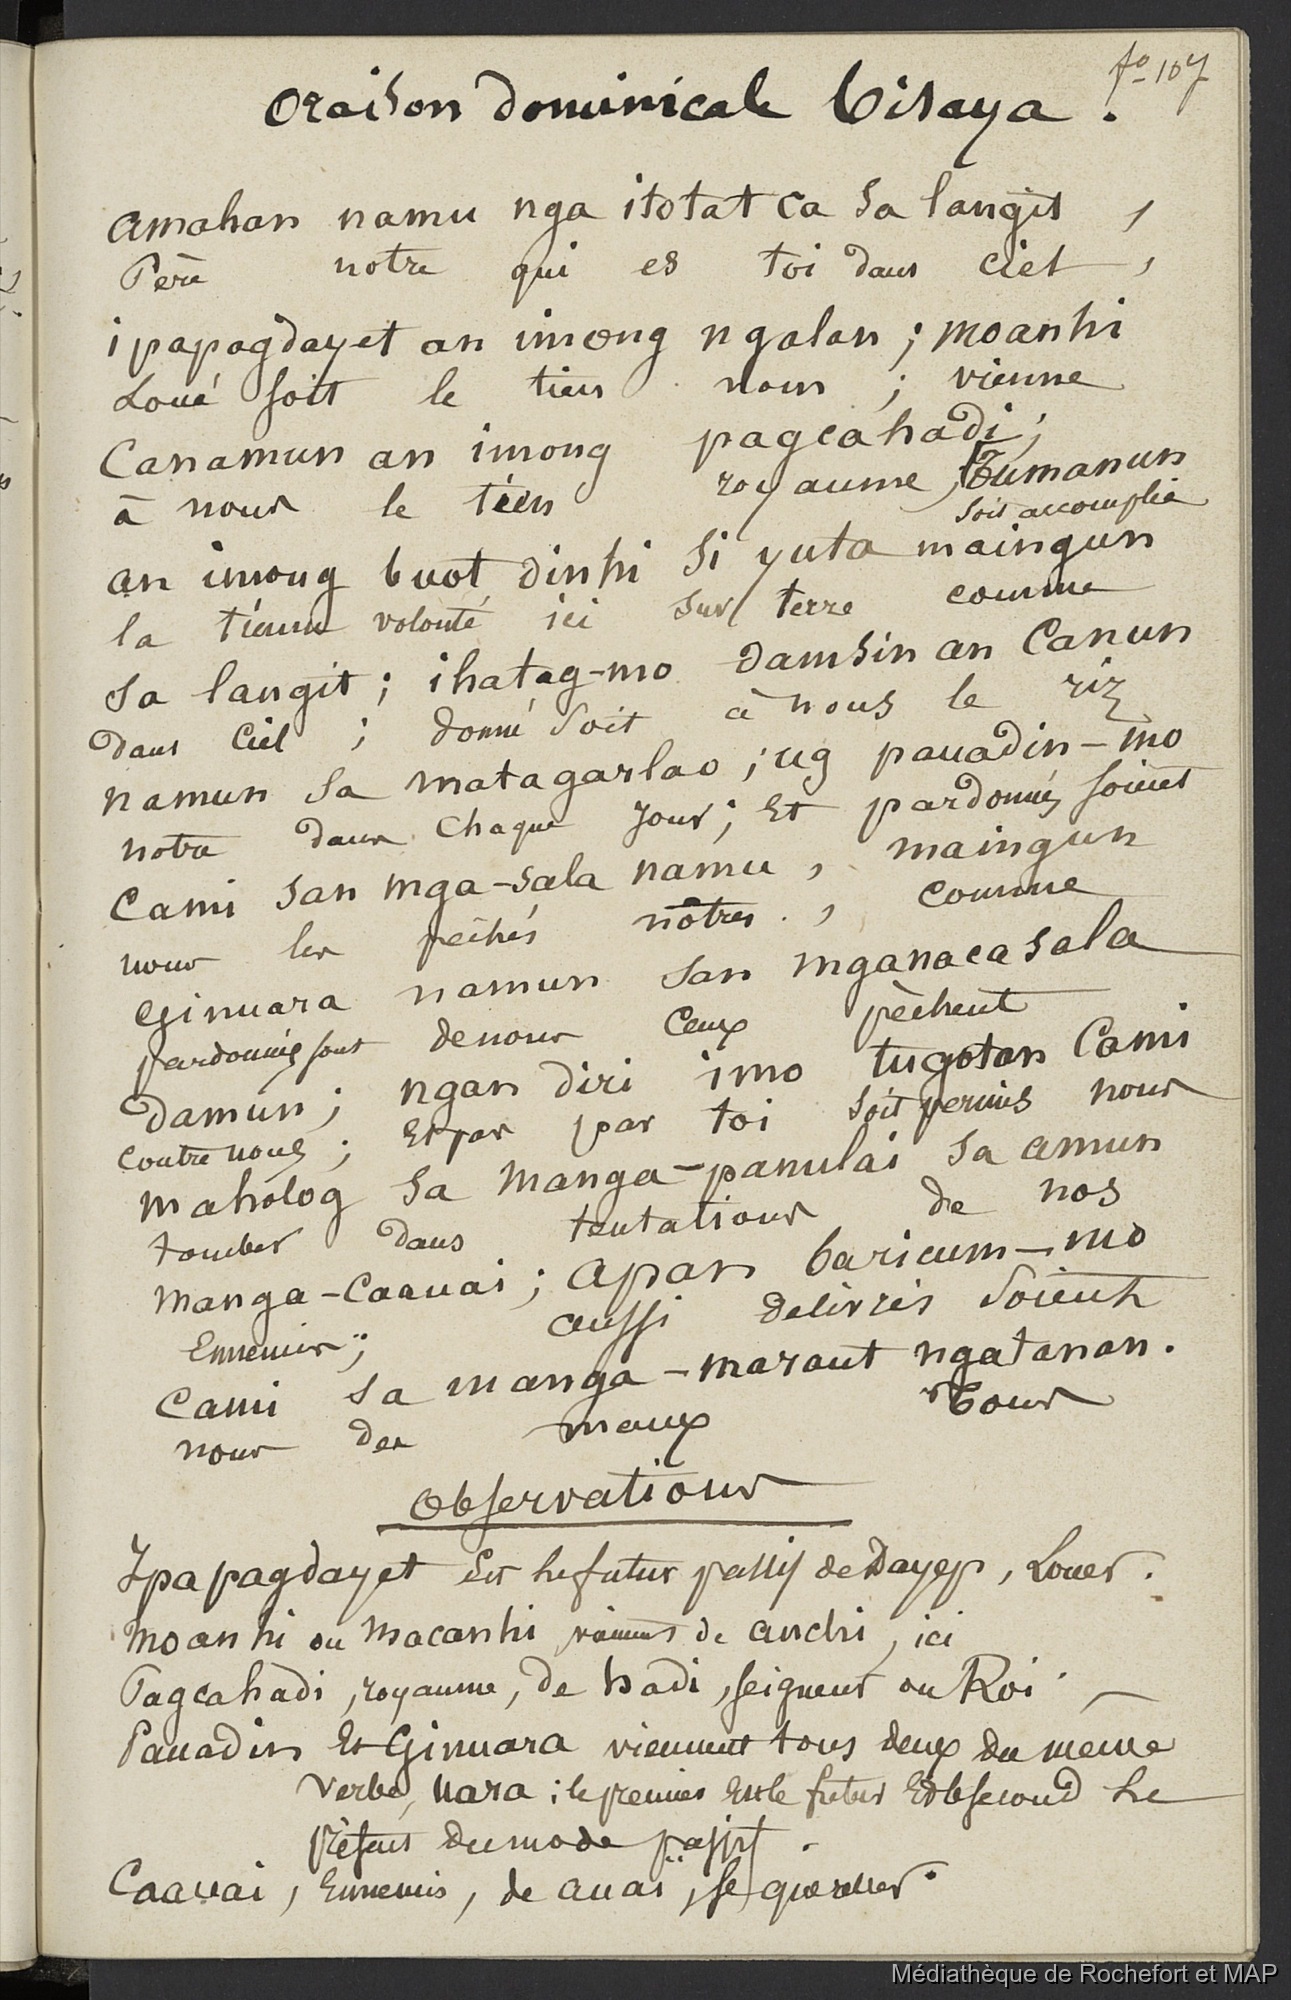 fo 107
Oraison dominicale bisaya.
Amahan namu nga itotat ca sa langit,
Père notre qui es toi dans ciel,
ipapagdayet an imong ngalan; moanhi
Loué soit le tien nom; vienne
Canamun an imong pagcahadi;
à nous le tien royaume; Tumanun
soit accomplie
an imong buot dinhi si yuta maingun
la tienne volonté ici sur terre comme
sa langit; ihatag-mo damsin an Canun
dans Ciel; donné soit à nous le riz
namun sa matagarlao; ug pauadin-mo
notre dans Chaque jour; Et pardonnés soient
Cami san mga-sala namu, maingun
nous les péchés nôtres, comme
Ginuara namun san mganacasala
pardonnés sont de nous Ceux pèchent
damun; ngan diri imo tugotan Cami
contre nous; Et par toi soit permis nous
maholog sa manga-panulai sa amun
tomber dans tentations de nos
manga-Caauai; apan baricum-mo
Ennemis; aussi delivrés soient
Cami sa manga-maraut ngatanan.
nous des maux Tous
Observations
Ipapagdayet Est le futur passif de Dayep, Louer.
Moanhi ou Macanhi, viennent de anchi, ici
Pagcahadi, royaume, de hadi, seigneur ou Roi.
Pauadin Et Ginuara viennent tous deux du même
Verbe, uara; le premier Est le futur Et le second le
présent du mode passif.
Caauai, Ennemis, de auai, se quereller.
Médiathèque de Rochefort et MAP